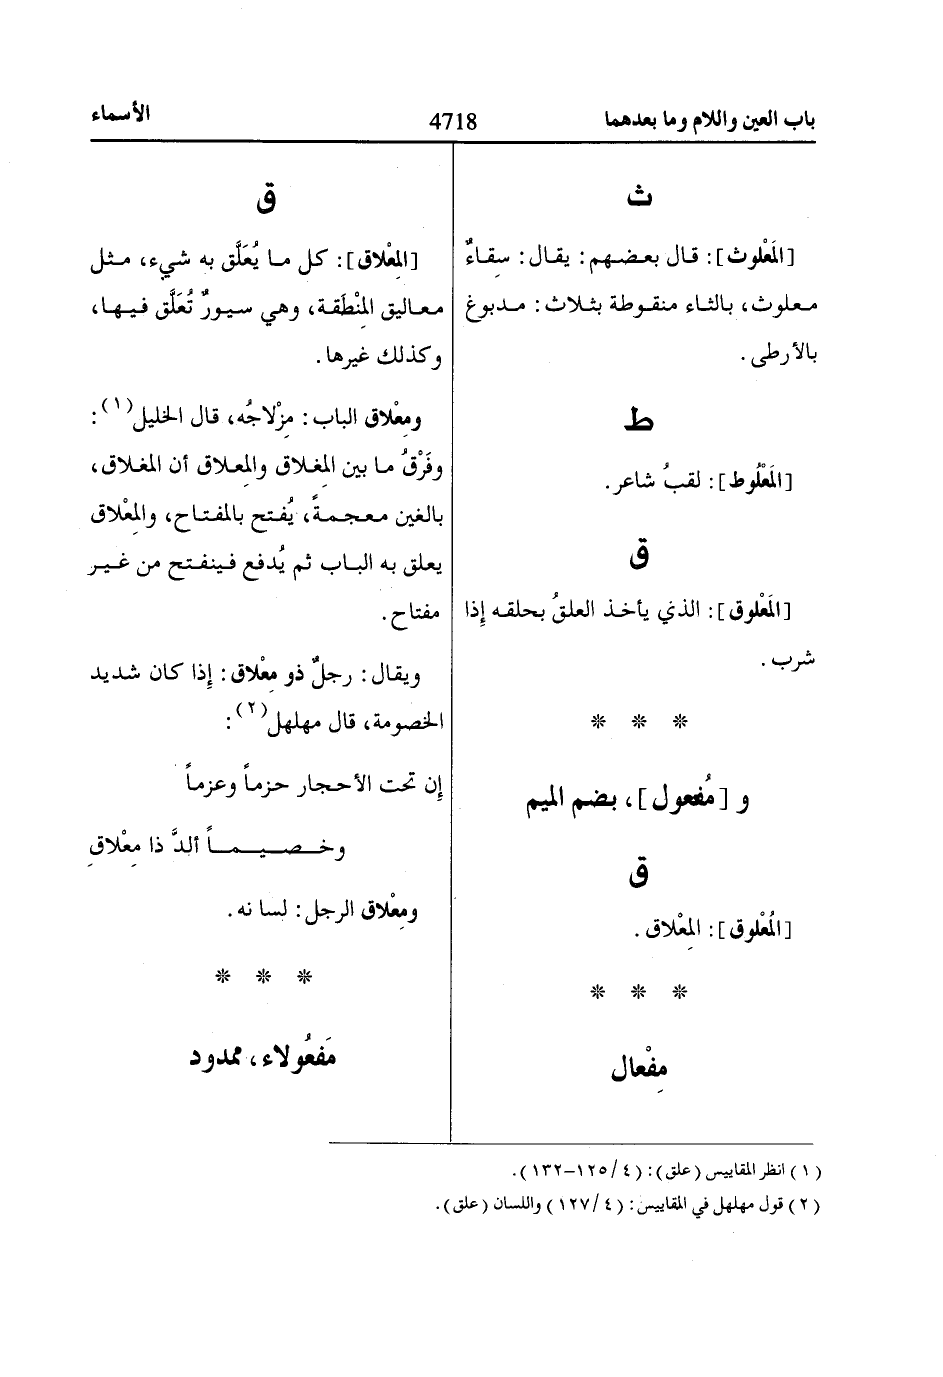 باب العين واللام وما بعدهما
4718
الأسماء
ث
[المَعْلوث]: قال بعضهم: يقال: سِقاءٌ
معلوث، بالثاء منقوطة بثلاث: مدبوغ
بالأرطى.
ط
[المَعْلُوط]: لقبُ شاعر.
ق
[المَعْلوق]: الذي يأخذ العلقُ بحلقه إِذا
شرب.
* * *
و [مُفعول]، بضم الميم
ق
[المُعْلوق]: المِعْلاق.
* * *
مِفْعال
ق
[المِعْلاق]: كل ما يُعَلَّق به شيء، مثل
معاليق المِنْطَقة، وهي سيورٌ تُعَلَّق فيها،
وكذلك غيرها.
ومِعْلاق الباب: مِزْلاجُه، قال الخليل(١):
وفَرْقُ ما بين المِغلاق والمِعلاق أن المغلاق،
بالغين معجمةً، يُفتح بالمفتاح، والمِعْلاق
يعلق به الباب ثم يُدفع فينفتح من غير
مفتاح.
ويقال: رجلٌ ذو مِعْلاق: إِذا كان شديد
الخصومة، قال مهلهل(٢):
إِن تحت الأحجار حزماً وعزماً
وخصيماً ألدَّ ذا مِعْلاقِ
ومِعْلاق الرجل: لسانه.
* * *
مَفعُولاء، ممدود
(١) انظر المقاييس (علق): (٤/ ١٢٥–١٣٢).
(٢) قول مهلهل في المقاييس: (٤/ ١٢٧) واللسان (علق).